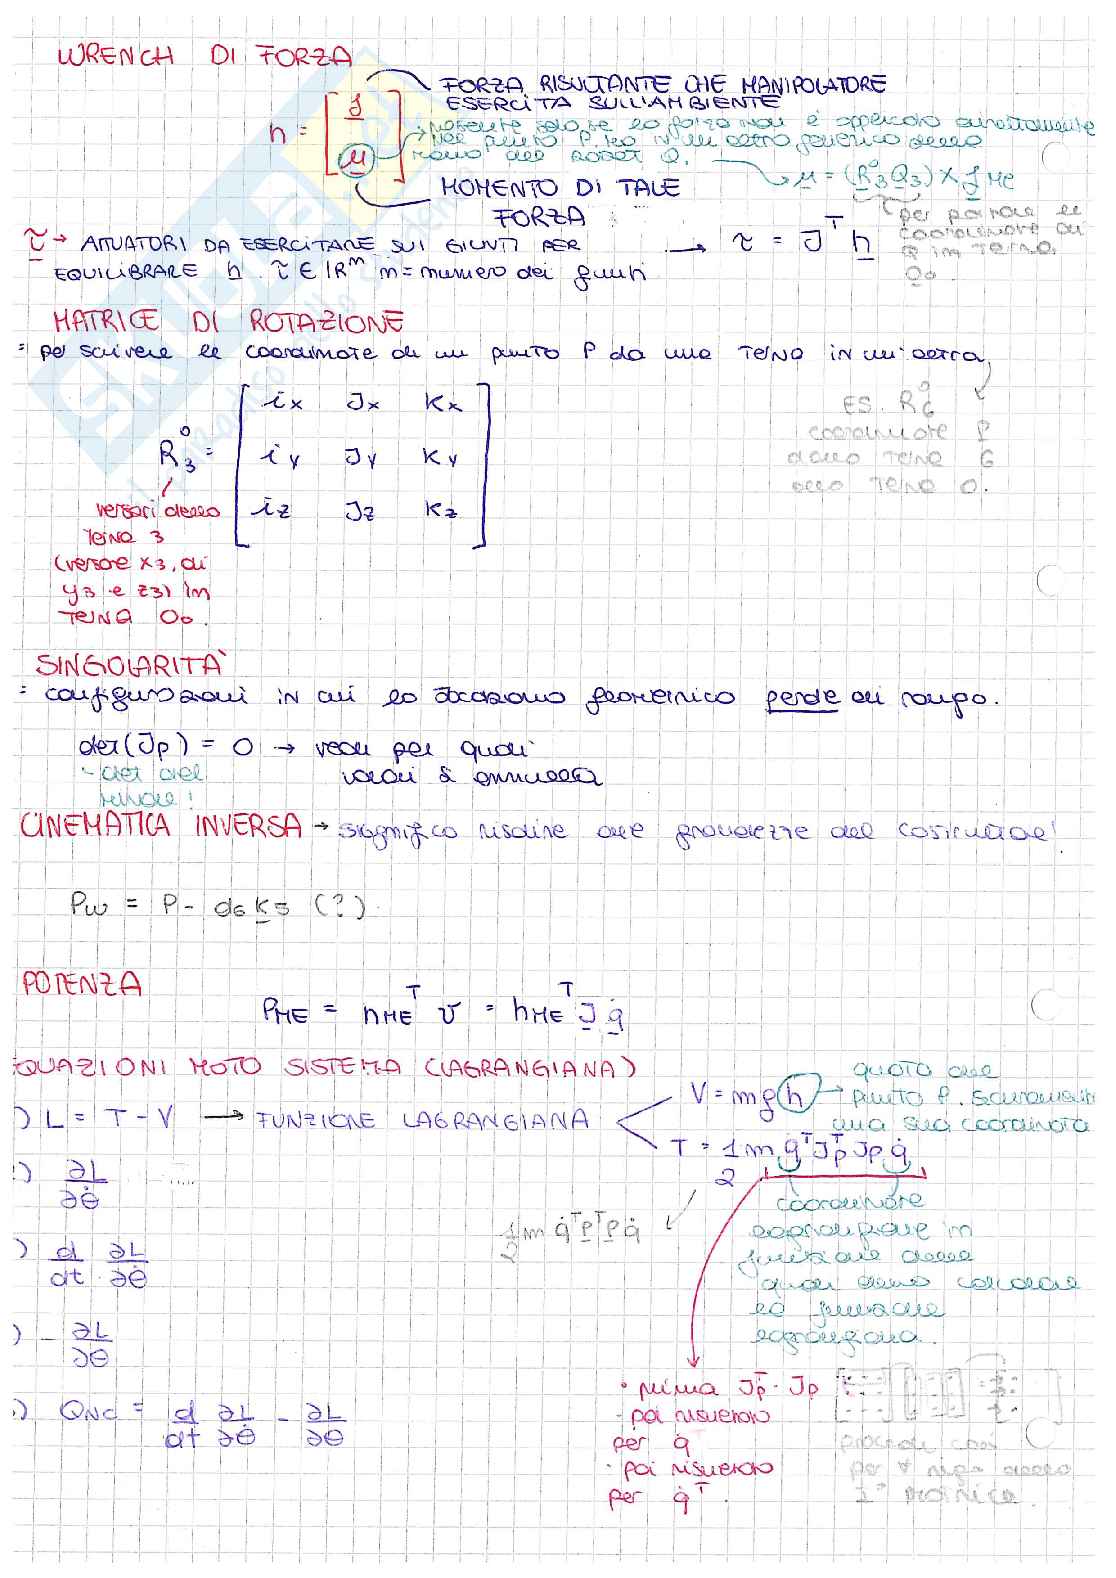 WRENCH DI FORZA
FORZA RISULTANTE CHE MANIPOLATORE
ESERCITA SULL'AMBIENTE
h = [ f
μ ]
presente solo se la forza non è applicata direttamente
nel punto P, ma in un altro generico della
ramo del robot Q.
μ = (R⁰₃Q₃) × f ME
MOMENTO DI TALE
FORZA
per portare le
coordinate di
Q in terna
O₀.
τ → ATTUATORI DA ESERCITARE SUI GIUNTI PER
EQUILIBRARE h. τ ∈ ℝᵐ m = numero dei giunti
→ τ = Jᵀ h
MATRICE DI ROTAZIONE
= per scrivere le coordinate di un punto P da una TERNA in un'altra
ES. R⁰₆
coordinate P
dalla TERNA 6
alla TERNA 0.
R⁰₃ =
ix Jx Kx
iy Jy Ky
iz Jz Kz
versori della
TERNA 3
(versore x3, di
y3 e z3) in
TERNA O₀.
SINGOLARITÀ
= configurazioni in cui lo Jacobiano geometrico perde di rango.
det(Jp) = 0 → vedi per quali
valori si annulla
det del
minore!
CINEMATICA INVERSA → significa risalire alle grandezze del costruttore!
Pw = P - d₆ k₃ (?)
POTENZA
PME = hMEᵀ v = hMEᵀ J q̇
EQUAZIONI MOTO SISTEMA (LAGRANGIANA)
) L = T - V → FUNZIONE LAGRANGIANA
V = mgh → quota del
punto P. Sicuramente
una sua coordinata
T = 1/2 m q̇ᵀ Jpᵀ Jp q̇
1/2 m q̇ᵀ Pᵀ P q̇
coordinate
lagrangiane in
funzione delle
quali devo calcolare
la funzione
lagrangiana.
) ∂L/∂θ̇ .....
) d/dt ∂L/∂θ̇
) - ∂L/∂θ
) QNC = d/dt ∂L/∂θ̇ - ∂L/∂θ
· prima Jpᵀ · Jp
· poi risultato
per q̇
· poi risultato
per q̇ᵀ.
procedi così
per ∀ riga della
1ª matrice.